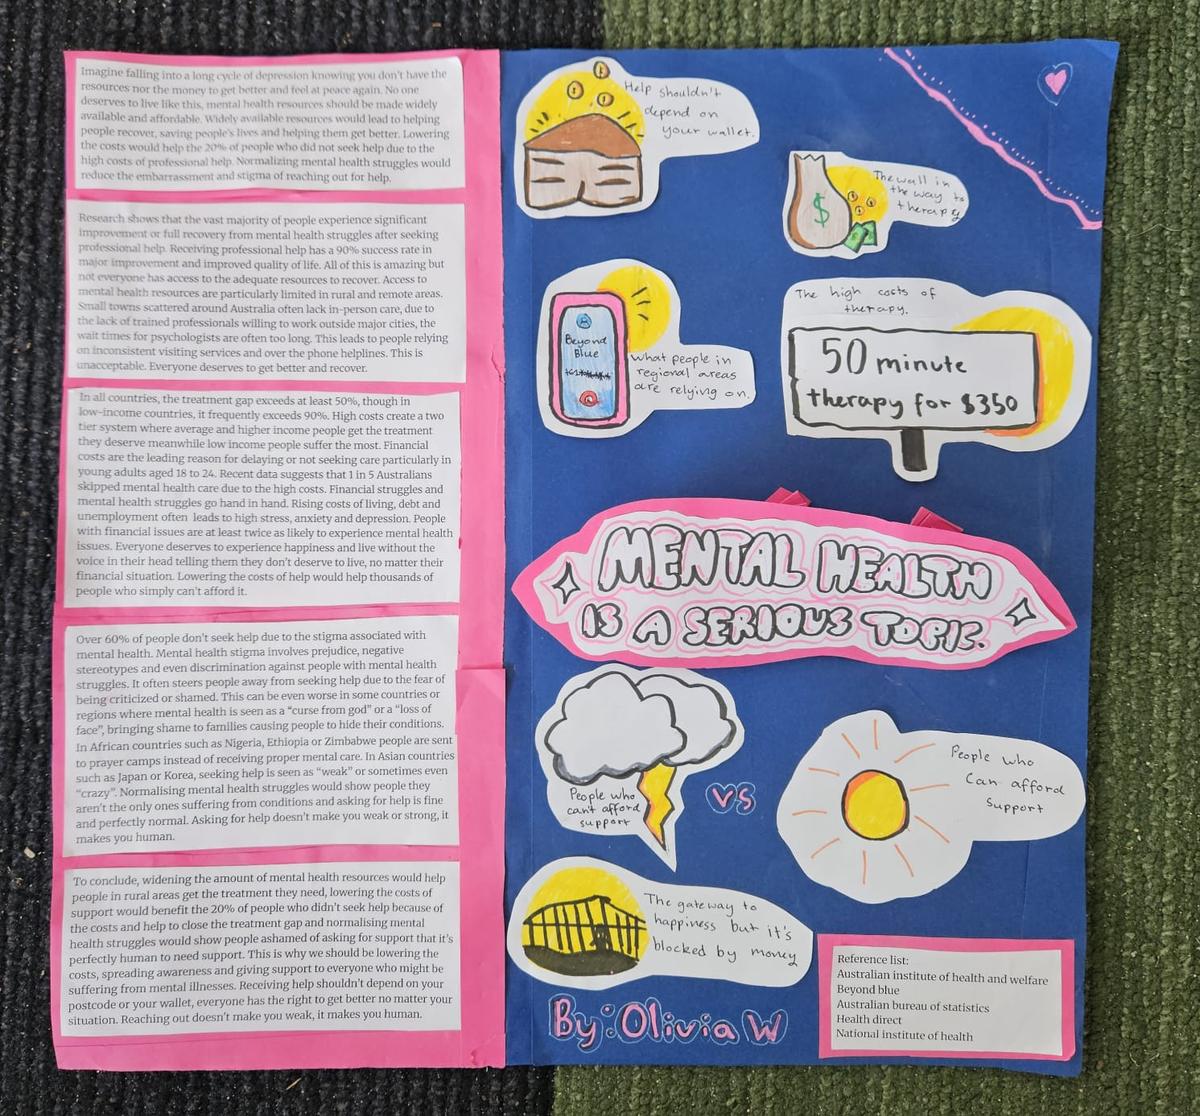 Imagine falling into a long cycle of depression knowing you don't have the
resources nor the money to get better and feel at peace again. No one
deserves to live like this, mental health resources should be made widely
available and affordable. Widely available resources would lead to helping
people recover, saving people's lives and helping them get better. Lowering
the costs would help the 20% of people who did not seek help due to the
high costs of professional help. Normalizing mental health struggles would
reduce the embarrassment and stigma of reaching out for help.
Research shows that the vast majority of people experience significant
improvement or full recovery from mental health struggles after seeking
professional help. Receiving professional help has a 90% success rate in
major improvement and improved quality of life. All of this is amazing but
not everyone has access to the adequate resources to recover. Access to
mental health resources are particularly limited in rural and remote areas.
Small towns scattered around Australia often lack in-person care, due to
the lack of trained professionals willing to work outside major cities, the
wait times for psychologists are often too long. This leads to people relying
on inconsistent visiting services and over the phone helplines. This is
unacceptable. Everyone deserves to get better and recover.
In all countries, the treatment gap exceeds at least 50%, though in
low-income countries, it frequently exceeds 90%. High costs create a two
tier system where average and higher income people get the treatment
they deserve meanwhile low income people suffer the most. Financial
costs are the leading reason for delaying or not seeking care particularly in
young adults aged 18 to 24. Recent data suggests that 1 in 5 Australians
skipped mental health care due to the high costs. Financial struggles and
mental health struggles go hand in hand. Rising costs of living, debt and
unemployment often leads to high stress, anxiety and depression. People
with financial issues are at least twice as likely to experience mental health
issues. Everyone deserves to experience happiness and live without the
voice in their head telling them they don't deserve to live, no matter their
financial situation. Lowering the costs of help would help thousands of
people who simply can't afford it.
Over 60% of people don't seek help due to the stigma associated with
mental health. Mental health stigma involves prejudice, negative
stereotypes and even discrimination against people with mental health
struggles. It often steers people away from seeking help due to the fear of
being criticized or shamed. This can be even worse in some countries or
regions where mental health is seen as a "curse from god" or a "loss of
face", bringing shame to families causing people to hide their conditions.
In African countries such as Nigeria, Ethiopia or Zimbabwe people are sent
to prayer camps instead of receiving proper mental care. In Asian countries
such as Japan or Korea, seeking help is seen as "weak" or sometimes even
"crazy". Normalising mental health struggles would show people they
aren't the only ones suffering from conditions and asking for help is fine
and perfectly normal. Asking for help doesn't make you weak or strong, it
makes you human.
To conclude, widening the amount of mental health resources would help
people in rural areas get the treatment they need, lowering the costs of
support would benefit the 20% of people who didn't seek help because of
the costs and help to close the treatment gap and normalising mental
health struggles would show people ashamed of asking for support that it's
perfectly human to need support. This is why we should be lowering the
costs, spreading awareness and giving support to everyone who might be
suffering from mental illnesses. Receiving help shouldn't depend on your
postcode or your wallet, everyone has the right to get better no matter your
situation. Reaching out doesn't make you weak, it makes you human.
Help shouldn't
depend on
your wallet.
$
The wall in
the way to
therapy
Beyond
Blue
What people in
regional areas
are relying on.
The high costs of
therapy.
50 minute
therapy for $350
MENTAL HEALTH
IS A SERIOUS TOPIC.
People who
can't afford
support
VS
People who
Can afford
support
The gateway to
happiness but it's
blocked by money
By: Olivia W
Reference list:
Australian institute of health and welfare
Beyond blue
Australian bureau of statistics
Health direct
National institute of health